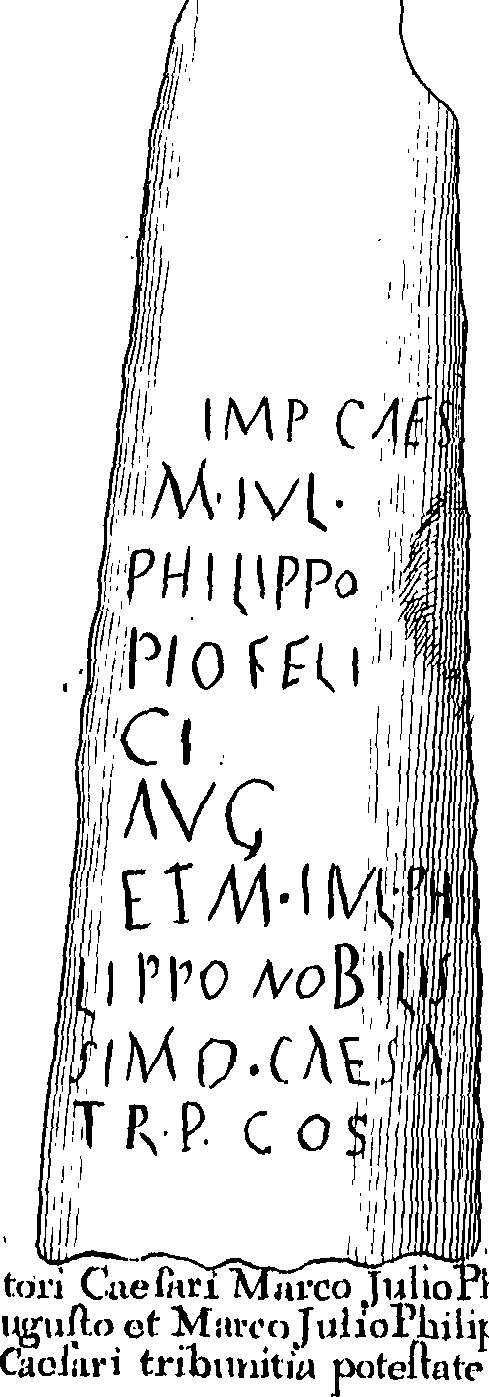 IMP CAES
M·IVL·
PHILIPPO
PIO FELI
CI
AVG
ET M·IVL·PH
LIPPO NOBILIS
SIMO·CAESA
TR·P. COS
tori Caeſari Marco Julio Ph
uguſto et Marco Julio Philip
Caeſari tribunitia poteſtate